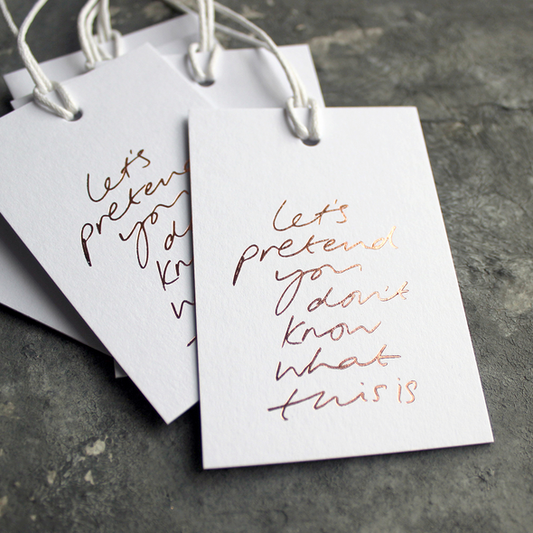 let's
pretend
you
don't
know
what
this is
let's
pretend
you